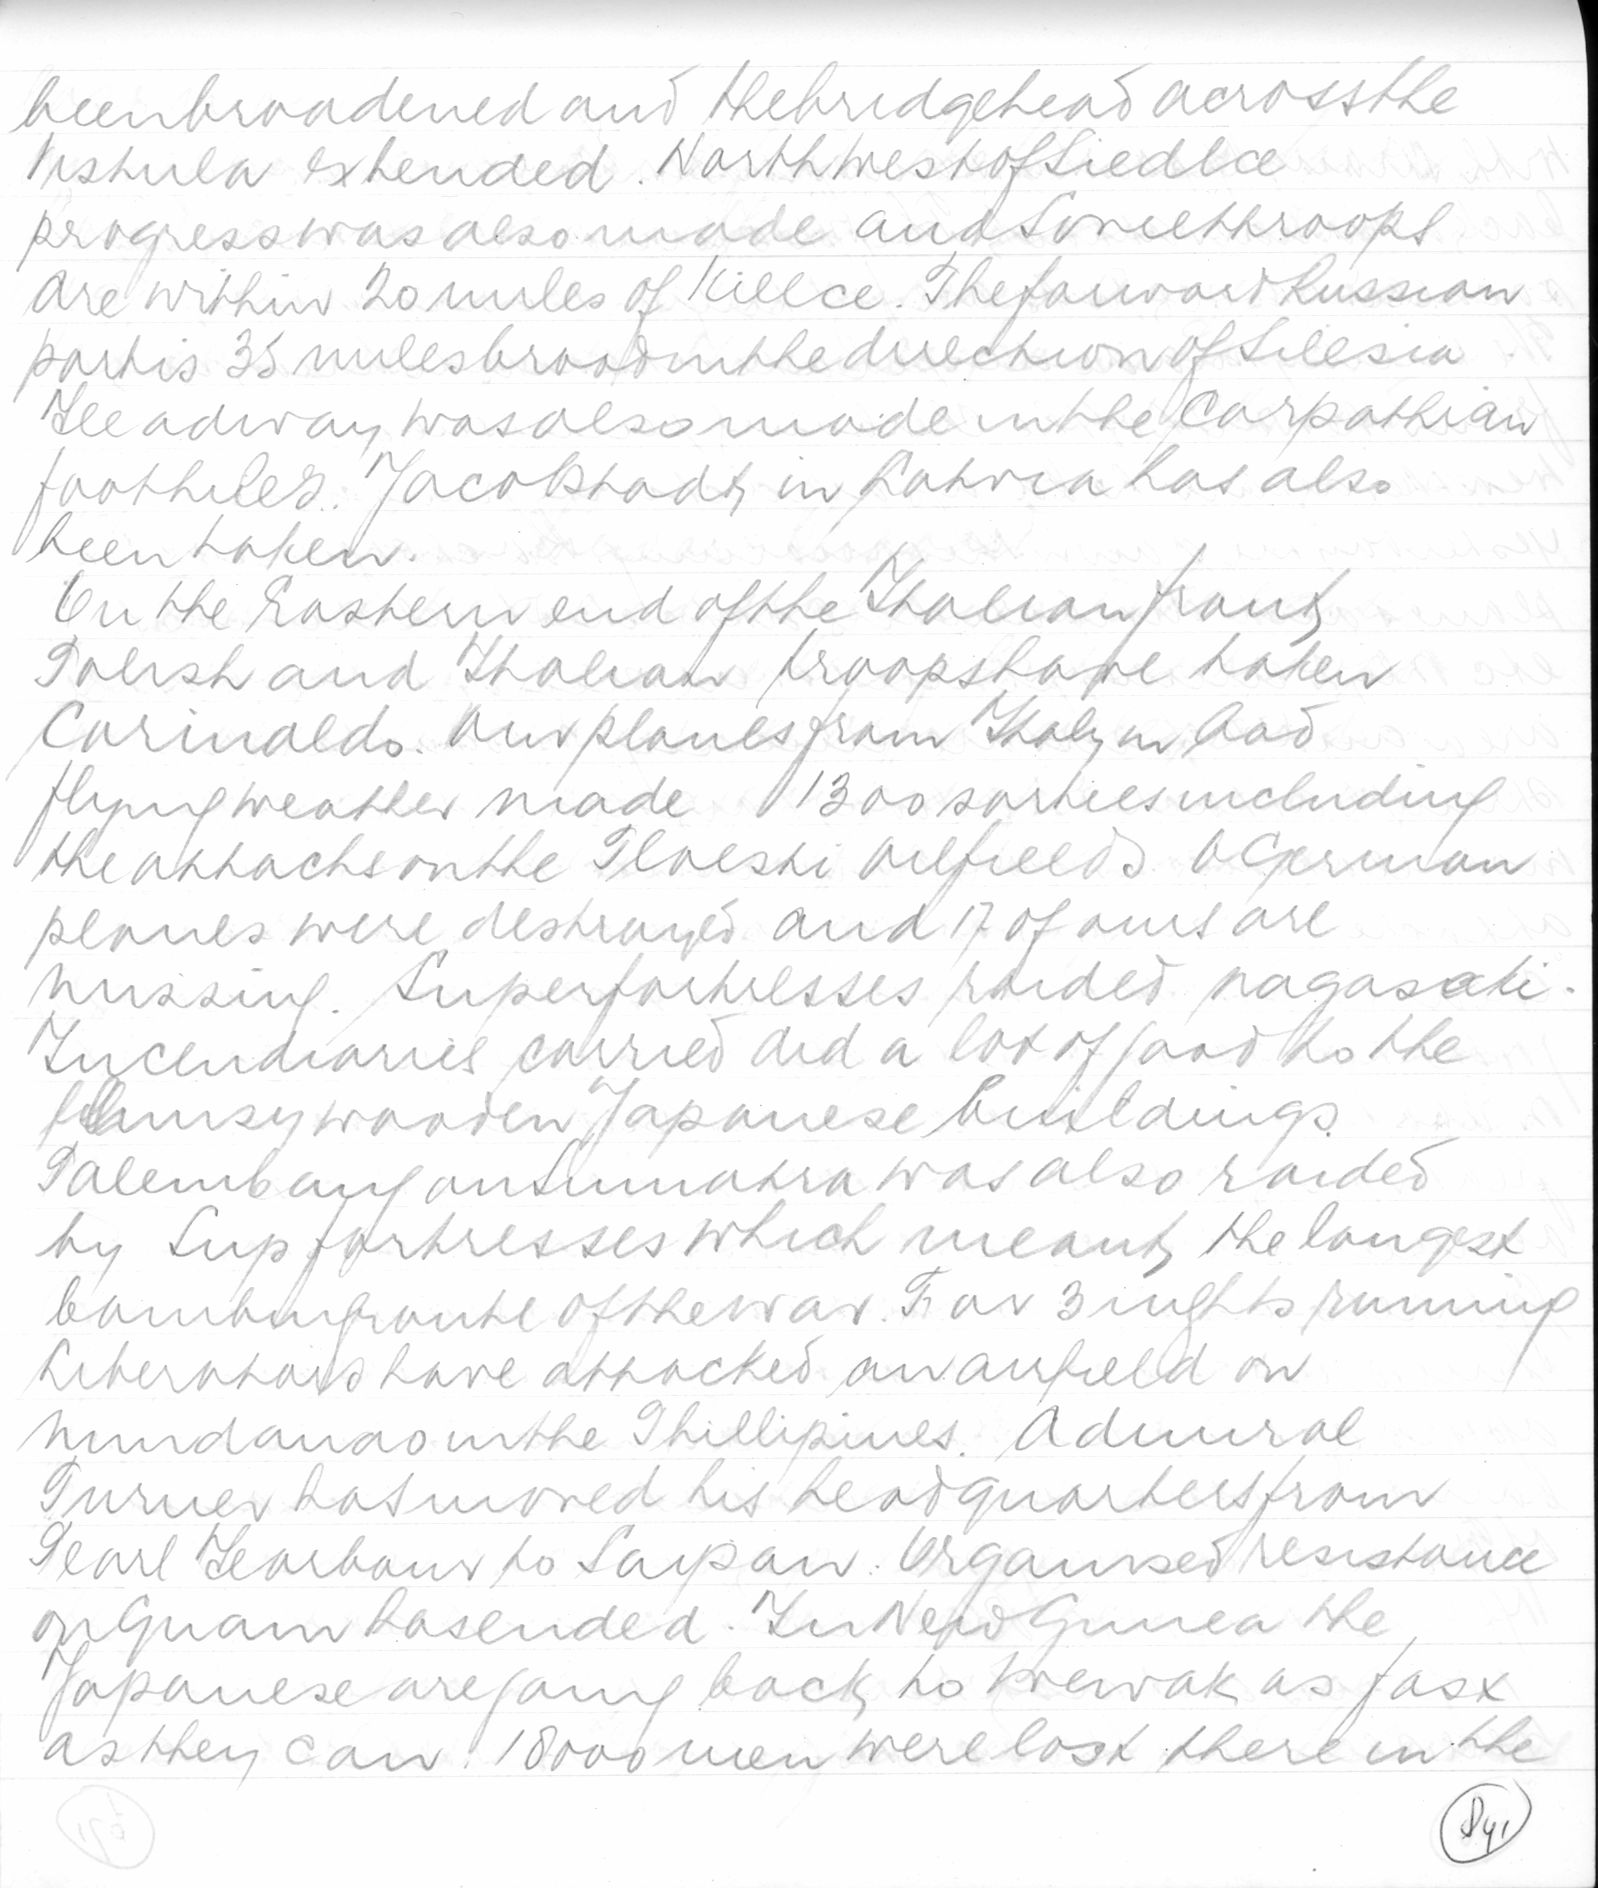 been broadened and the bridgehead across the
Vistula extended. North West of Siedlce
progress was also made and Soviet troops
are within 20 miles of Kielce. The forward Russian
part is 35 miles broad in the direction of Silesia
Headway was also made in the Carpathian
foothills. Jacobstadt in Latvia has also
been taken.
On the Eastern end of the Italian front
Polish and Italian troops have taken
Corinaldo. Our planes from Italy in bad
flying weather made 1300 sorties including
the attacks on the Ploesti oilfields. 0 German
planes were destroyed and 17 of ours are
missing. Superfortresses raided Nagasaki.
Incendiaries carried did a lot of good to the
flimsy wooden Japanese buildings.
Palembang on Sumatra was also raided
by Supfortresses which meant the longest
bombing route of the war. For 3 nights running
Liberators have attacked an airfield on
Mindanao in the Phillipines. Admiral
Turner has moved his headquarters from
Pearl Harbour to Saipan. Organised resistance
on Guam has ended. In New Guinea the
Japanese are going back to Wewak as fast
as they can. 18000 men were lost there in the